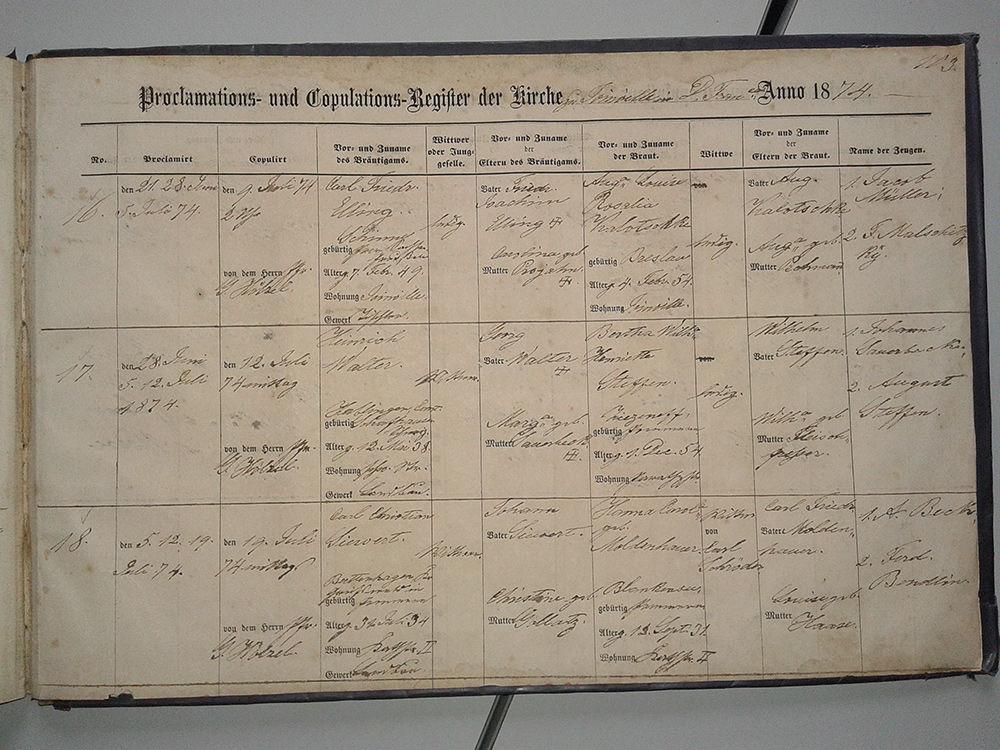 No 3.
Proclamations- und Copulations-Register der Kirche zu Joinville in D. Franca Anno 1874.
No. Proclamirt Copulirt Vor- und Zuname des Bräutigams. Wittwer oder Junggeselle. Vor- und Zuname der Eltern des Bräutigams. Vor- und Zuname der Braut. Wittwe Vor- und Zuname der Eltern der Braut. Name der Zeugen.
6.
den 21. 28. Juni
5. Juli 74.
den 9. Juli 74
von dem Herrn Pfr.
G. Hölzel.
Carl Friedr.
Elling.
gebürtig
Alter g. 7. Febr. 49.
Wohnung Joinville.
Gewerk
ledig.
Vater Friedr.
Joachim
Elling +
Mutter
+
Aug. Louise
Rosalia
Kalotschke
gebürtig Breslau
Alter g. 4. Febr. 54
Wohnung Joinville.
von
ledig.
Vater Aug.
Kalotschke
Aug. geb.
Mutter
1. Jacob
Müller;
2. F. Malschitzky.
17.
den 28. Juni
5. 12. Juli
1874.
den 12. Juli
74 mittag
von dem Herrn Pfr.
G. Hölzel.
Heinrich
Walter.
gebürtig Schaffhausen
Schweiz.
Alter g. 12. Mai 38.
Wohnung
Gewerk Landbau.
Wittwer.
Georg
Vater Walter
+
Marg. geb.
Mutter Sauerbeck
+
Bertha Wilh.
Henriette
Steffen.
gebürtig Pommern
Alter g. 1. Dec. 54
Wohnung
von
ledig.
Wilhelm
Vater Steffen.
Wilh. geb.
Mutter Fleisch-
fresser.
1. Johannes
Sauerbeck;
2. August
Steffen.
18.
den 5. 12. 19.
Juli 74.
den 19. Juli
74 mittag
von dem Herrn Pfr.
G. Hölzel.
Carl Christian
Siewert.
gebürtig Pommern
Alter g. Juli 34
Wohnung II
Gewerk Landbau.
Wittwer.
Johann
Vater Siewert.
Christine geb.
Mutter Gollatz.
Hanna Carol.
geb.
Moldenhauer
Blankensee,
gebürtig Pommern
Alter g. 12. Sept. 31.
Wohnung II
Wittwe
von
Carl
Schröder
Carl Friedr.
Vater Molden-
hauer.
Louise geb.
Mutter
Haase.
1. A. Beck;
2. Ferd.
Bendlin.